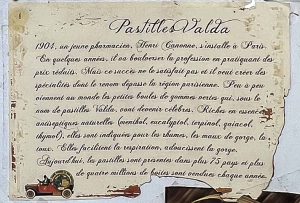 Pastilles Valda
1904, un jeune pharmacien, Henri Canonne, s'installe à Paris.
En quelques années, il va bouleverser la profession en pratiquant des
prix réduits. Mais ce succès ne le satisfait pas et il veut créer des
spécialités dont le renom dépasse la région parisienne. Peu à peu
viennent au monde les petites boules de gommes vertes qui, sous le
nom de pastilles Valda, vont devenir célèbres. Riches en essences
antiseptiques naturelles (menthol, eucalyptol, terpinol, gaïacol,
thymol), elles sont indiquées pour les rhumes, les maux de gorge, la
toux. Elles facilitent la respiration, adoucissent la gorge.
Aujourd'hui, les pastilles sont présentes dans plus 75 pays et plus
de quatre millions de boîtes sont vendues chaque année.